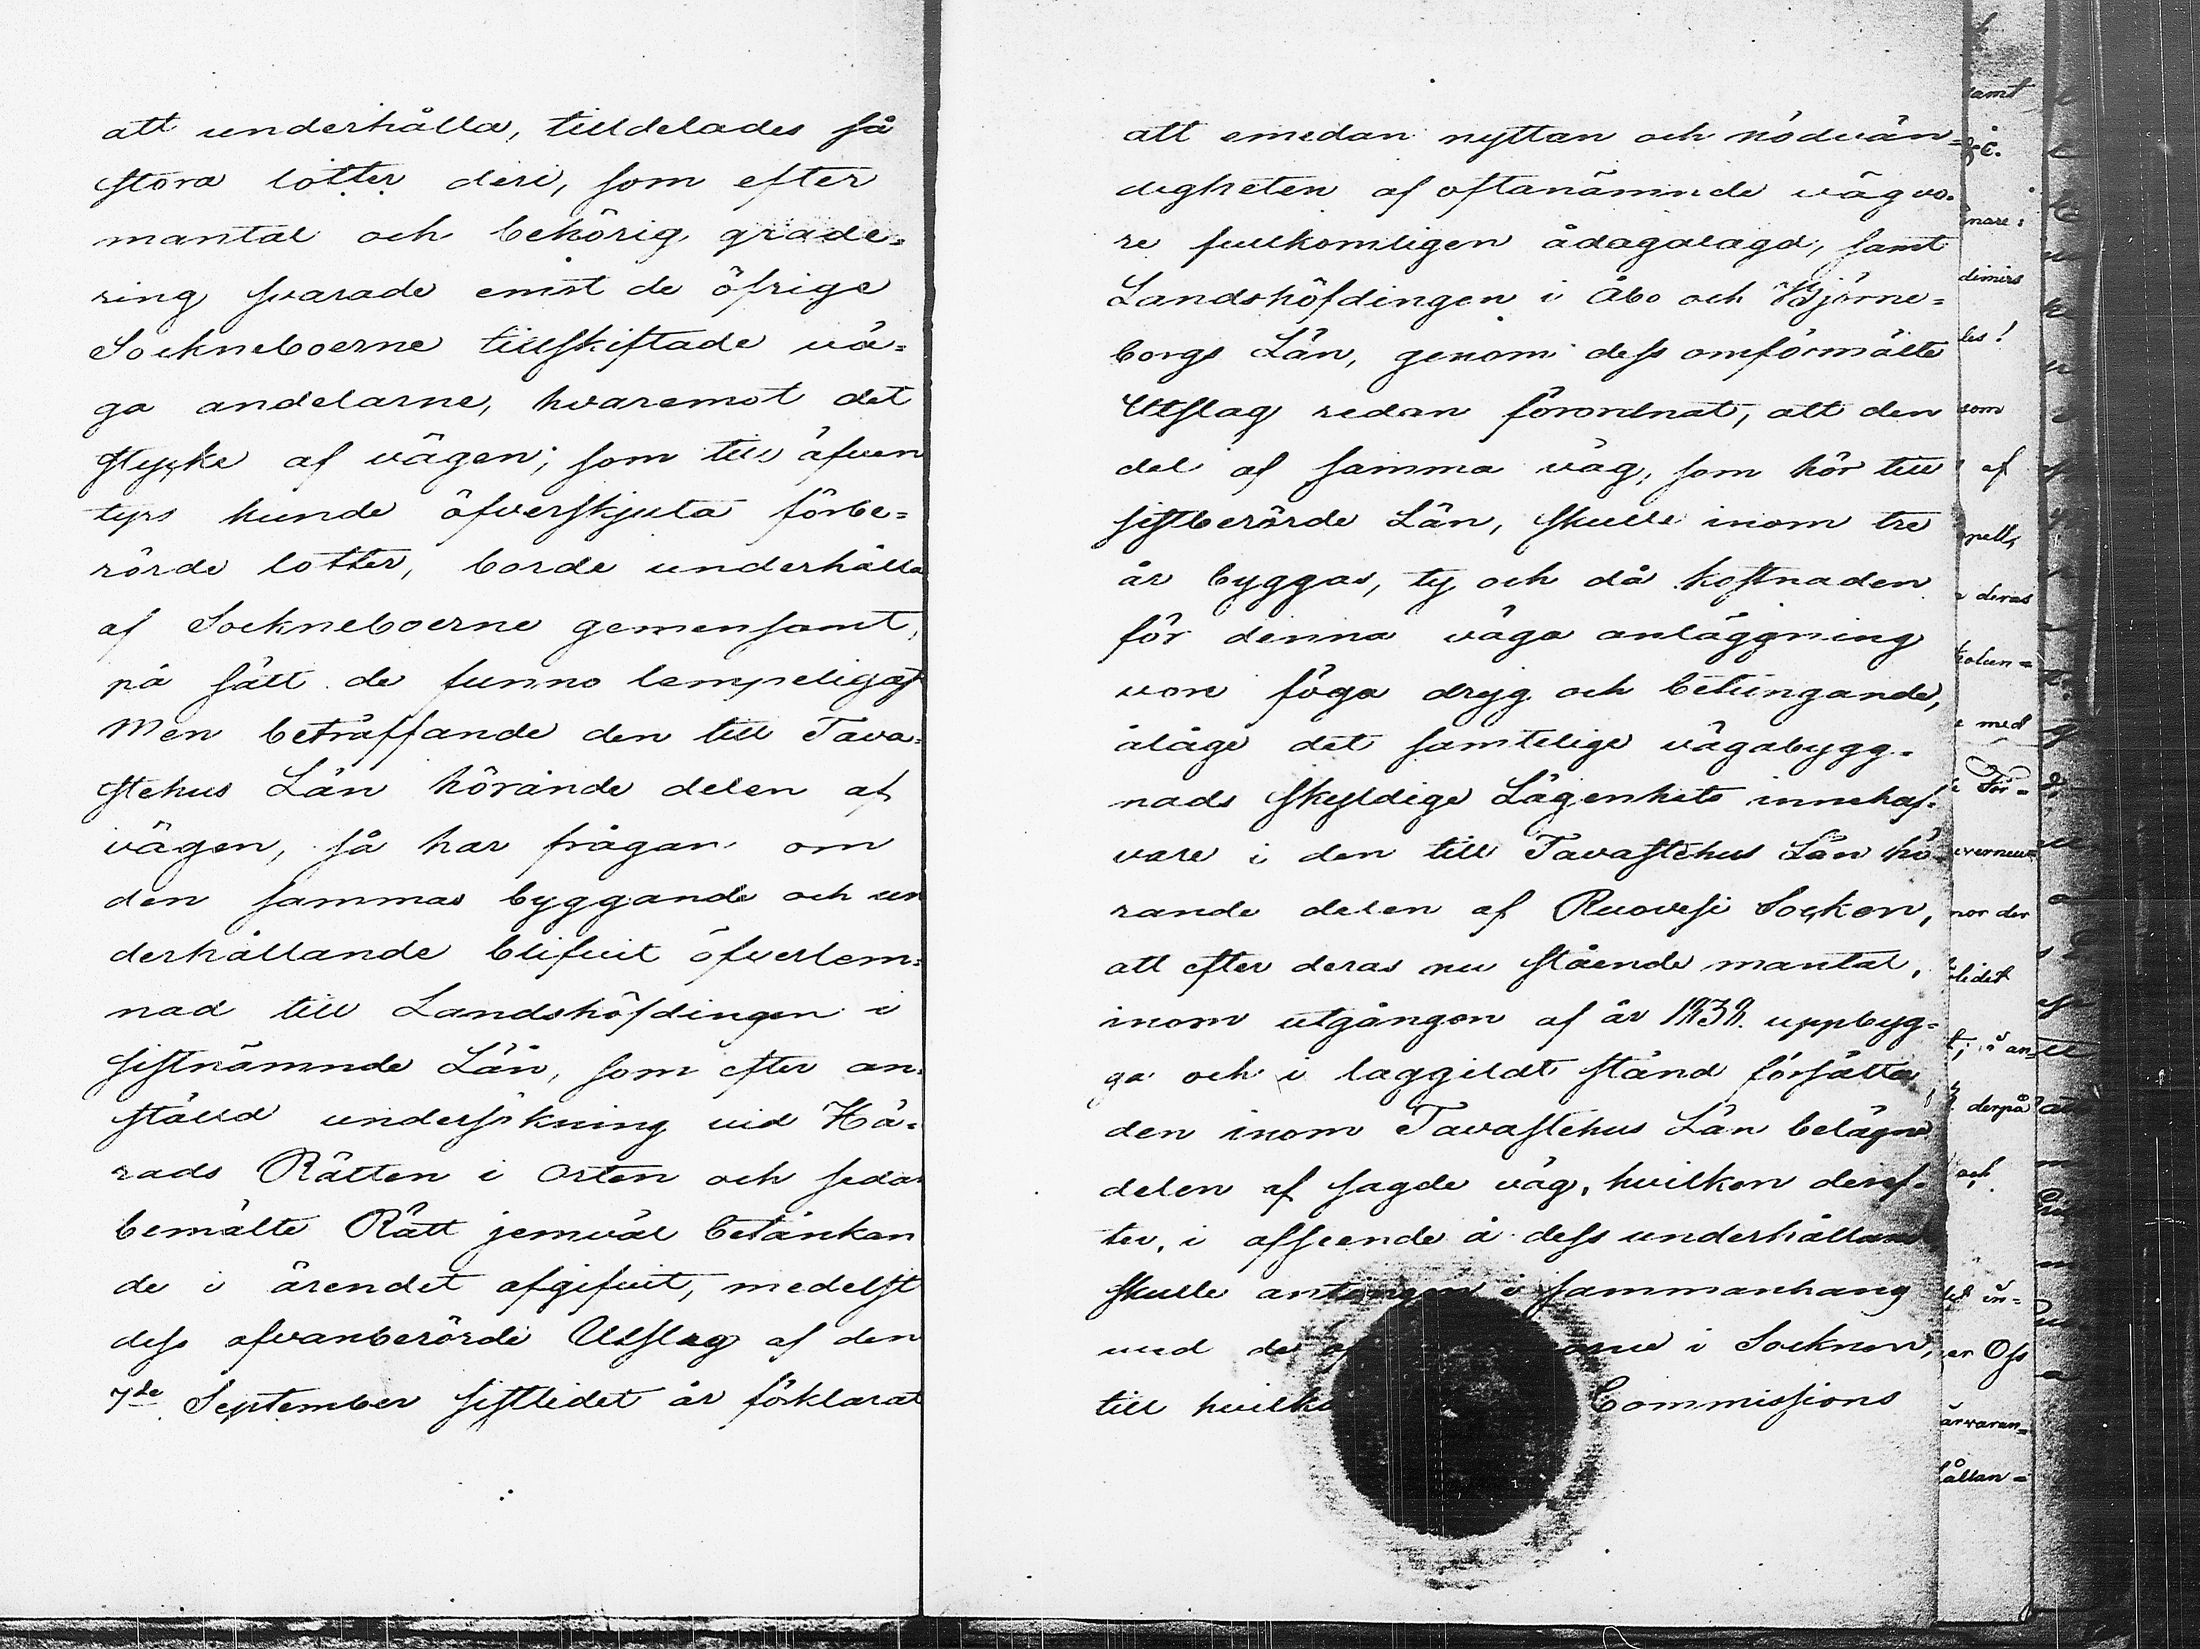 att underhålla, tilldelades så
stora lotter deri, som efter
mantal och behörig grade=
ring svarade emot de öfrige
Sockneboerne tillskiftade vä=
ga andelarne, hvaremot det
stycke af vägen, som till äfven
tyrs kunde öfverskjuta förbe=
rörde lotter, borde underhålla
af Sockneboerne gemensamt,
på sätt de funno lempeligast
Men beträffande den till Tava=
stehus Län hörande delen af
vägen, så har frågan om
den sammas byggande och un
derhållande blifvit öfverlem=
nad till Landshöfdingen i
sistnämnde Län, som efter an=
ställd undersökning vid Hä=
rads Rätten i Orten och sedan
bemälte Rätt jemväl betänkan
de i ärendet afgifvit, medelst
dess ofvanberörde Utslag af den
7de September sistlidet år förklarat
att emedan nyttan och nödvän=
digheten af oftanämnde väg vo=
re fullkomligen ådagalagd, samt
Landshöfdingen i Åbo och Björne=
borgs Län, genom dess omförmälte
Utslag redan förordnat, att den
del af samma väg, som hör till
sistberörde Län, skulle inom tre
år byggas, ty och då kostnaden
för denna väga anläggning
vore föga dryg och betungande,
ålåge det samtelige vägabygg=
nads skyldige Lägenhets innehaf=
vare i den till Tavastehus Län hö=
rande delen af Ruovesi Socken,
att efter deras nu stående mantal,
inom utgången af år 1838. uppbyg=
ga och i laggildt stånd försätta
den inom Tavastehus Län belägne
delen af sagde väg, hvilken deref=
ter, i afseende å dess underhållande
skulle antingen i sammanhang
med de i Socknen,
till Commissions
samt
dimirs
som
af
deras
med
För=
nor der
lidet
derpå
och
Oss
ärvaran=
hållan=